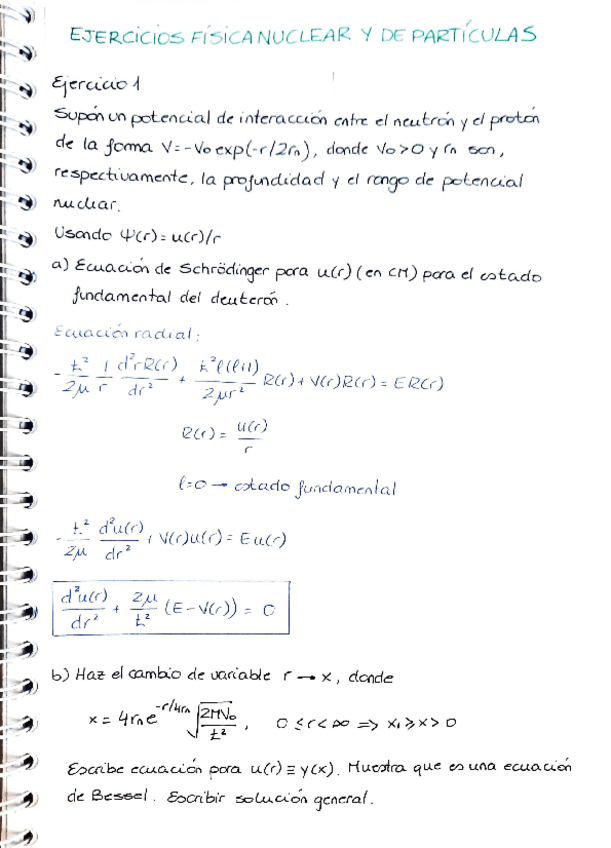 EJERCICIOS FÍSICA NUCLEAR Y DE PARTÍCULAS
Ejercicio 1
Supón un potencial de interacción entre el neutrón y el protón
de la forma V=-V₀ exp(-r/2rₙ), donde V₀>0 y rₙ son,
respectivamente, la profundidad y el rango de potencial
nuclear.
Usando Ψ(r)=u(r)/r
a) Ecuación de Schrödinger para u(r) (en CM) para el estado
fundamental del deuterón.
Ecuación radial:
-ħ²/2μ 1/r d²rR(r)/dr² + ħ²l(l+1)/2μr² R(r)+V(r)R(r)=ER(r)
R(r)= u(r)/r
l=0 → estado fundamental
-ħ²/2μ d²u(r)/dr² + V(r)u(r)=Eu(r)
d²u(r)/dr² + 2μ/ħ² (E-V(r)) = 0
b) Haz el cambio de variable r → x, donde
x = 4rₙe^(-r/4rₙ) √(2MV₀/ħ²), 0≤r<∞ ⇒ x₁≥x>0
Escribe ecuación para u(r)≡y(x). Muestra que es una ecuación
de Bessel. Escribir solución general.